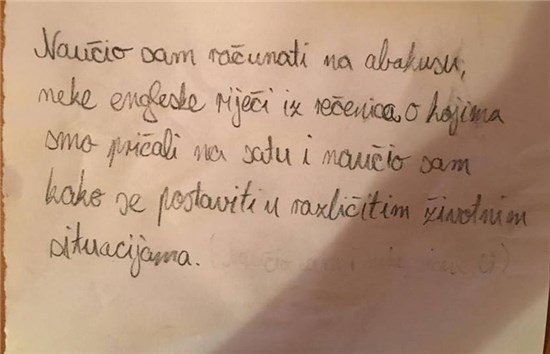 Naučio sam računati na abakusu,
neke engleske riječi iz rečenica o kojima
smo pričali na satu i naučio sam
kako se postaviti u različitim životnim
situacijama.